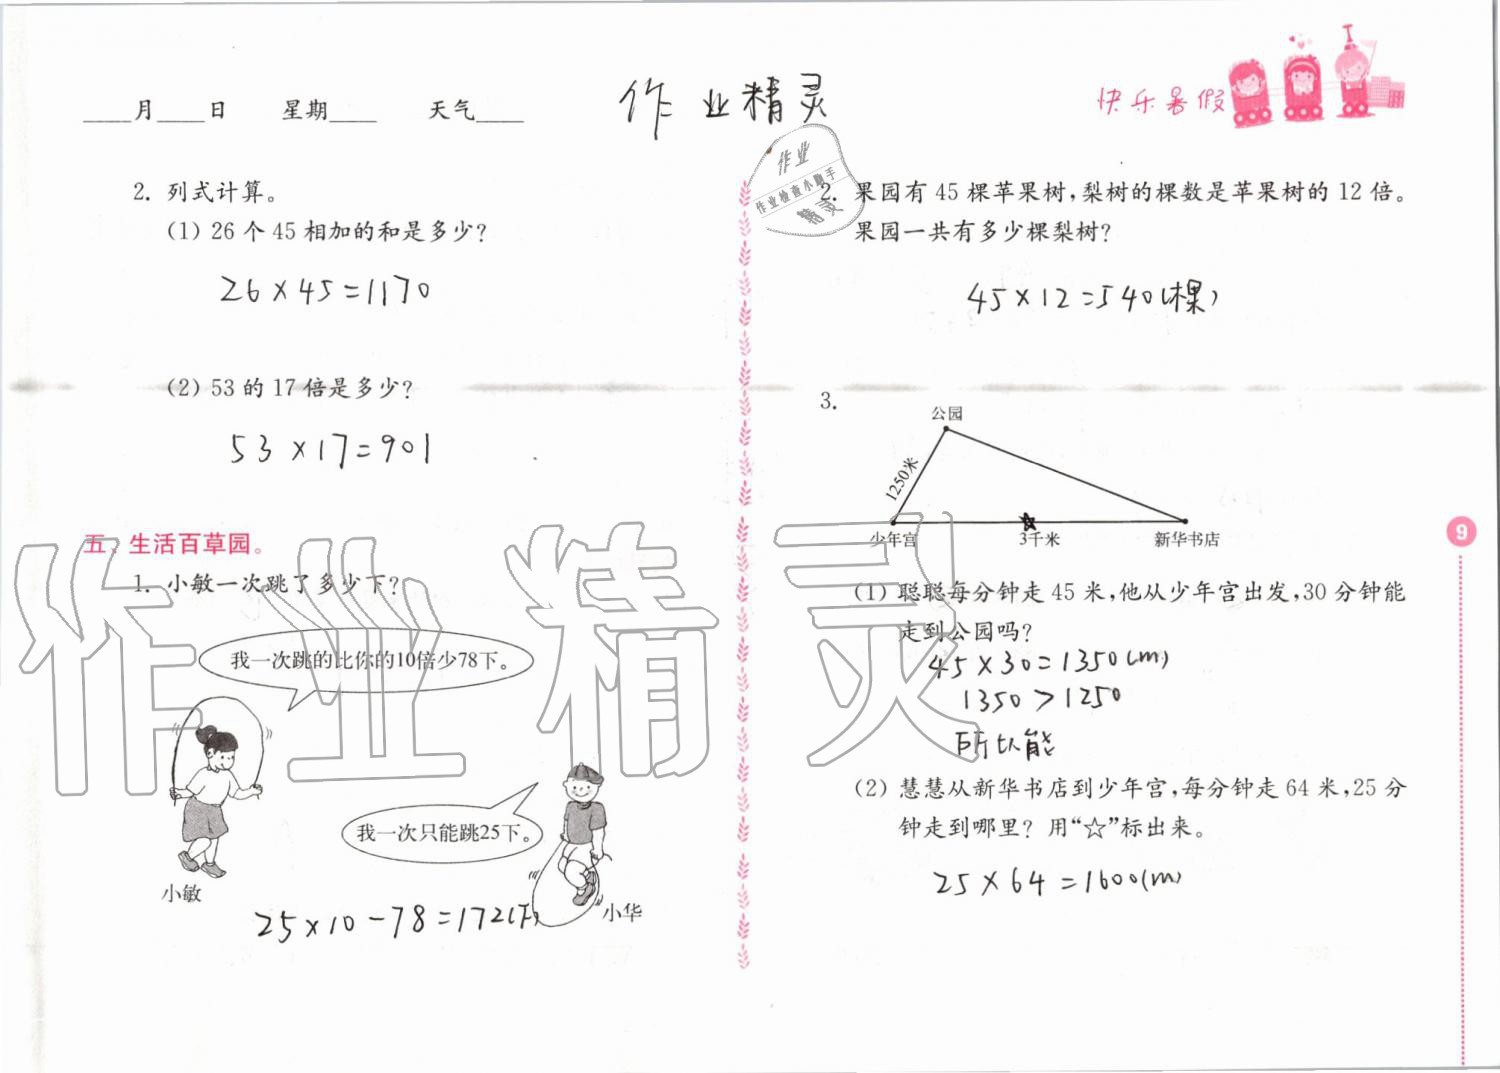 ____月____日 星期____ 天气____
作业精灵
快乐暑假
2. 列式计算。
(1) 26 个 45 相加的和是多少?
26×45=1170
(2) 53 的 17 倍是多少?
53×17=901
五、生活百草园。
1. 小敏一次跳了多少下?
我一次跳的比你的10倍少78下。
我一次只能跳25下。
小敏
小华
25×10-78=172(下)
作业
作业检查小助手
精灵
2. 果园有 45 棵苹果树,梨树的棵数是苹果树的 12 倍。
果园一共有多少棵梨树?
45×12=540(棵)
3.
公园
1250米
少年宫
3千米
新华书店
(1) 聪聪每分钟走 45 米,他从少年宫出发,30 分钟能
走到公园吗?
45×30=1350(m)
1350>1250
所以能
(2) 慧慧从新华书店到少年宫,每分钟走 64 米,25 分
钟走到哪里? 用“☆”标出来。
25×64=1600(m)
9
作业精灵